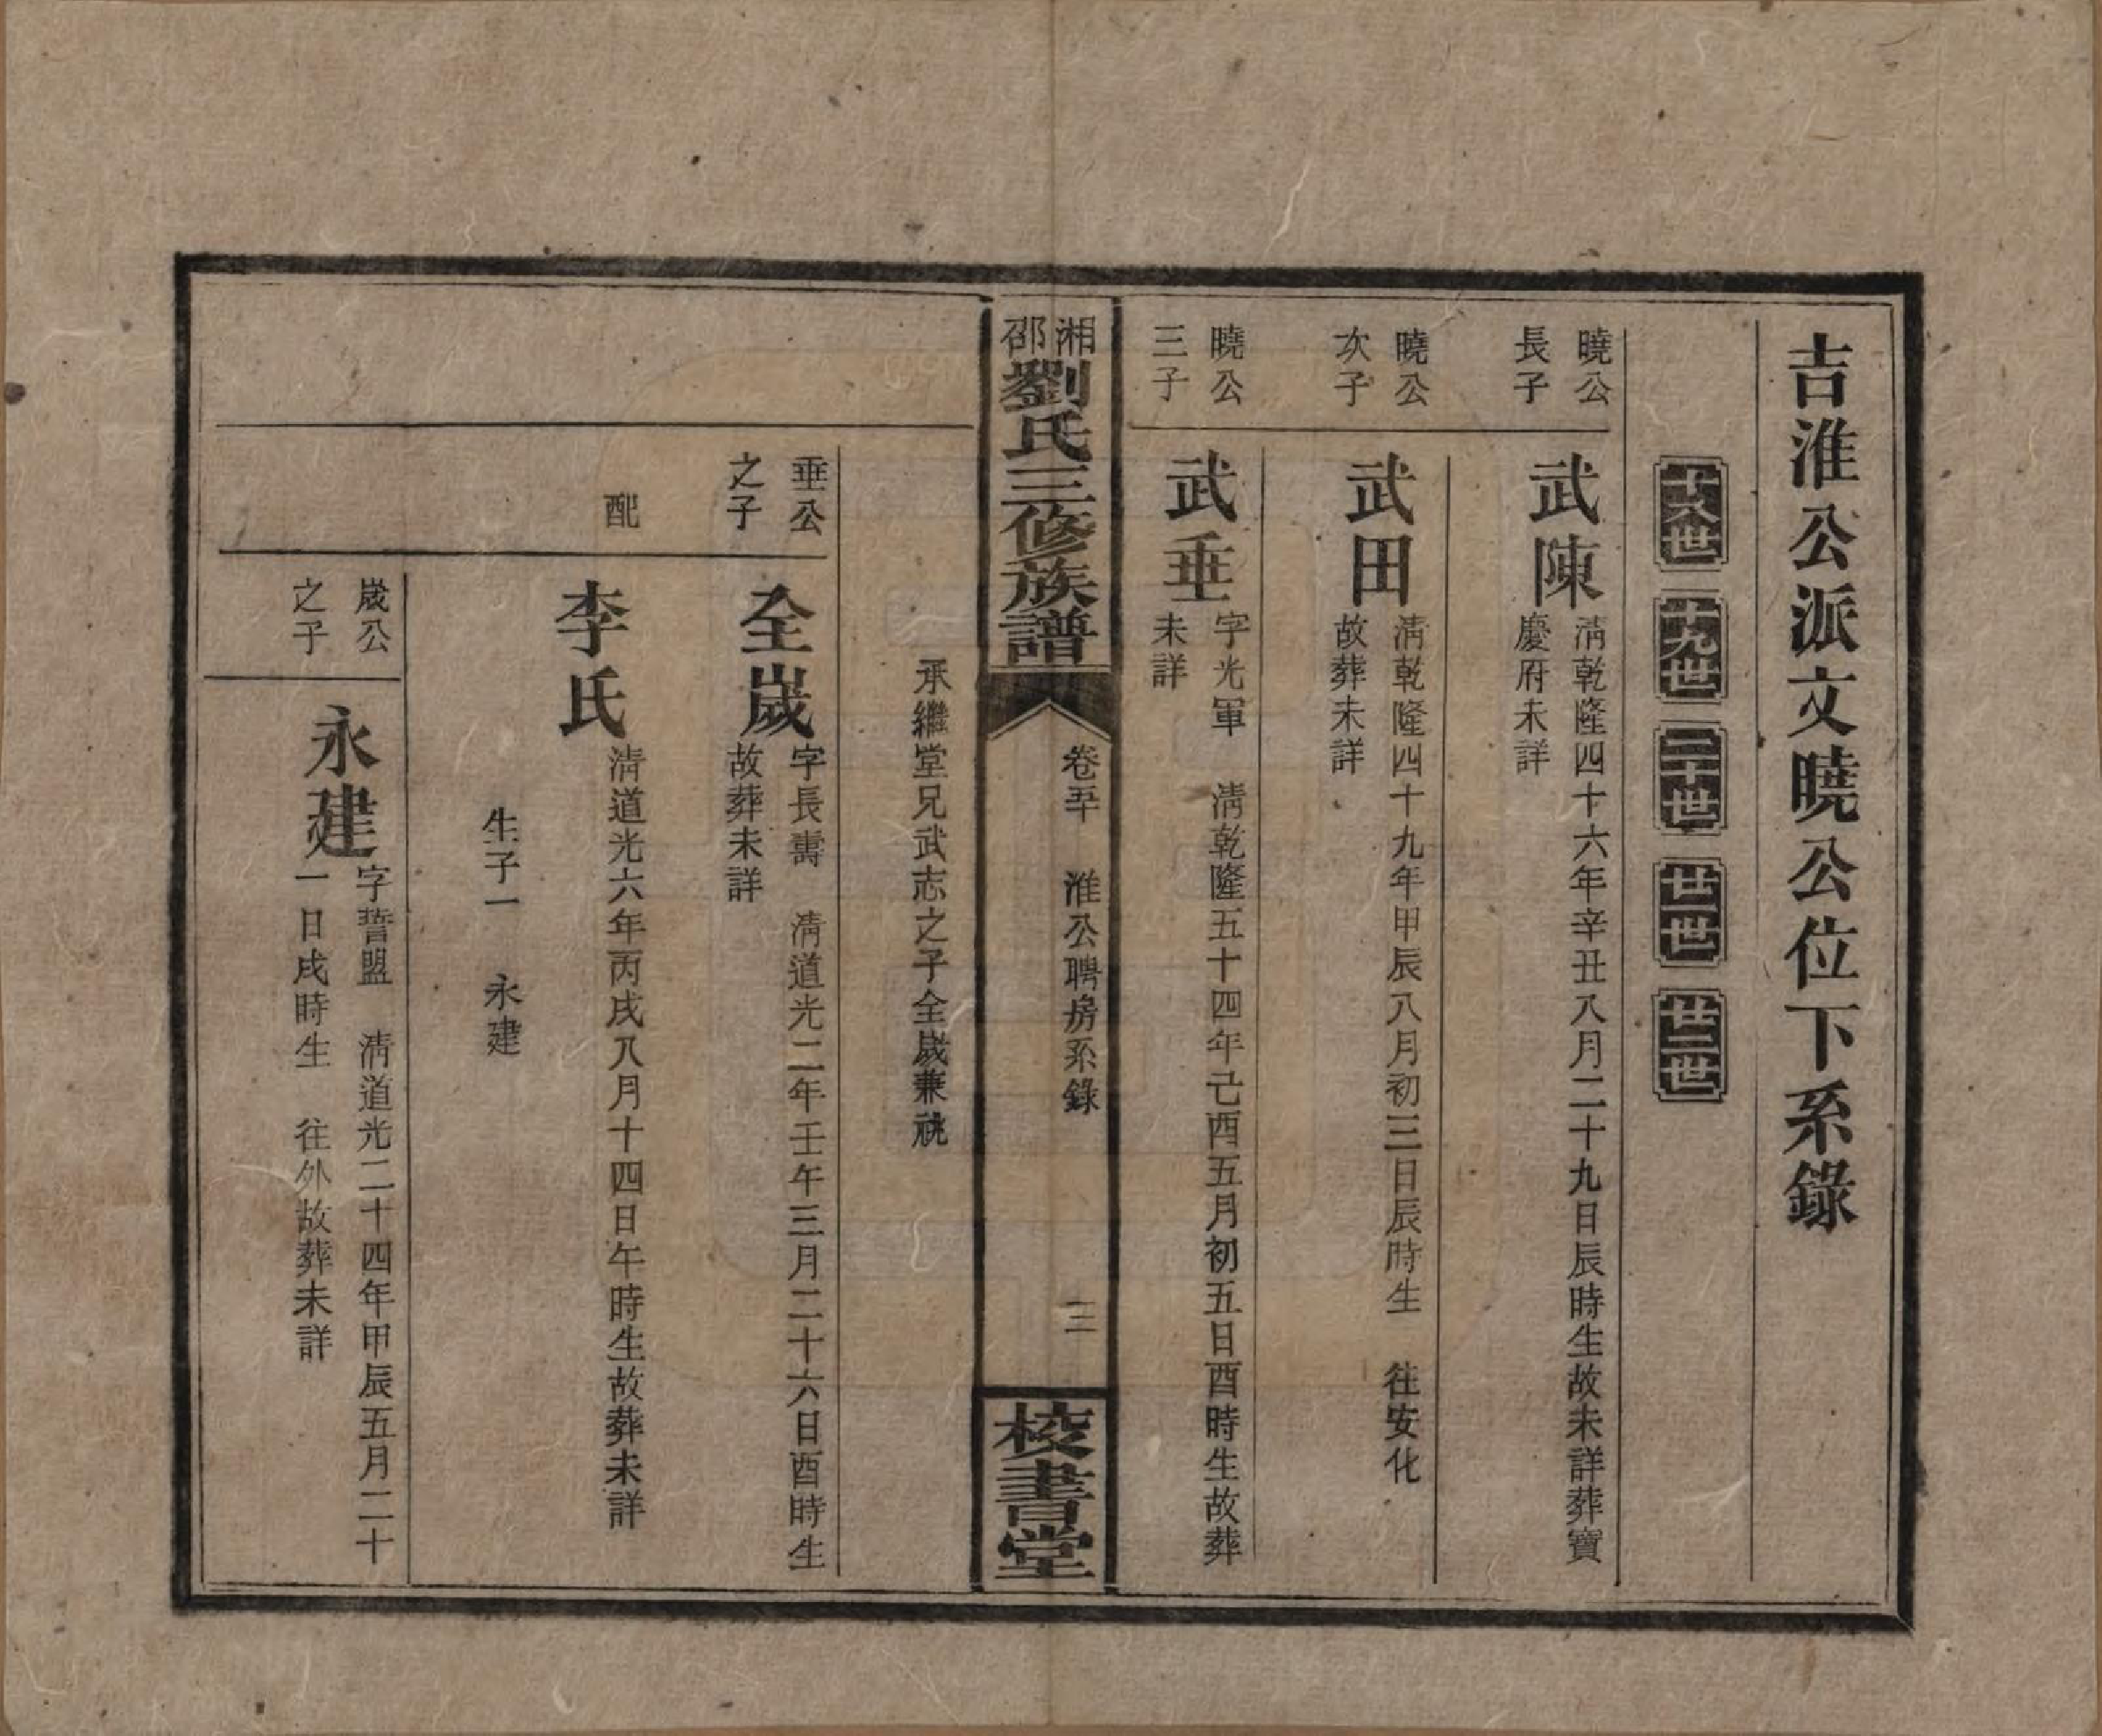 吉淮公派文曉公位下系錄
十八世
十九世
二十世
廿一世
廿二世
曉公
長子
武陳
淸乾隆四十六年辛丑八月二十九日辰時生故未詳葬寶
慶府未詳
曉公
次子
武田
淸乾隆四十九年甲辰八月初三日辰時生 往安化
故葬未詳
曉公
三子
武垂
字光軍 淸乾隆五十四年己酉五月初五日酉時生故葬
未詳
湘
邵
劉氏三修族譜
卷五十 淮公聘房系錄
三
校書堂
承繼堂兄武志之子全嵗兼祧
垂公
之子
全嵗
字長壽 淸道光二年壬午三月二十六日酉時生
故葬未詳
配
李氏
淸道光六年丙戌八月十四日午時生故葬未詳
生子一 永建
嵗公
之子
永建
字誓盟 淸道光二十四年甲辰五月二十
一日戌時生 往外故葬未詳